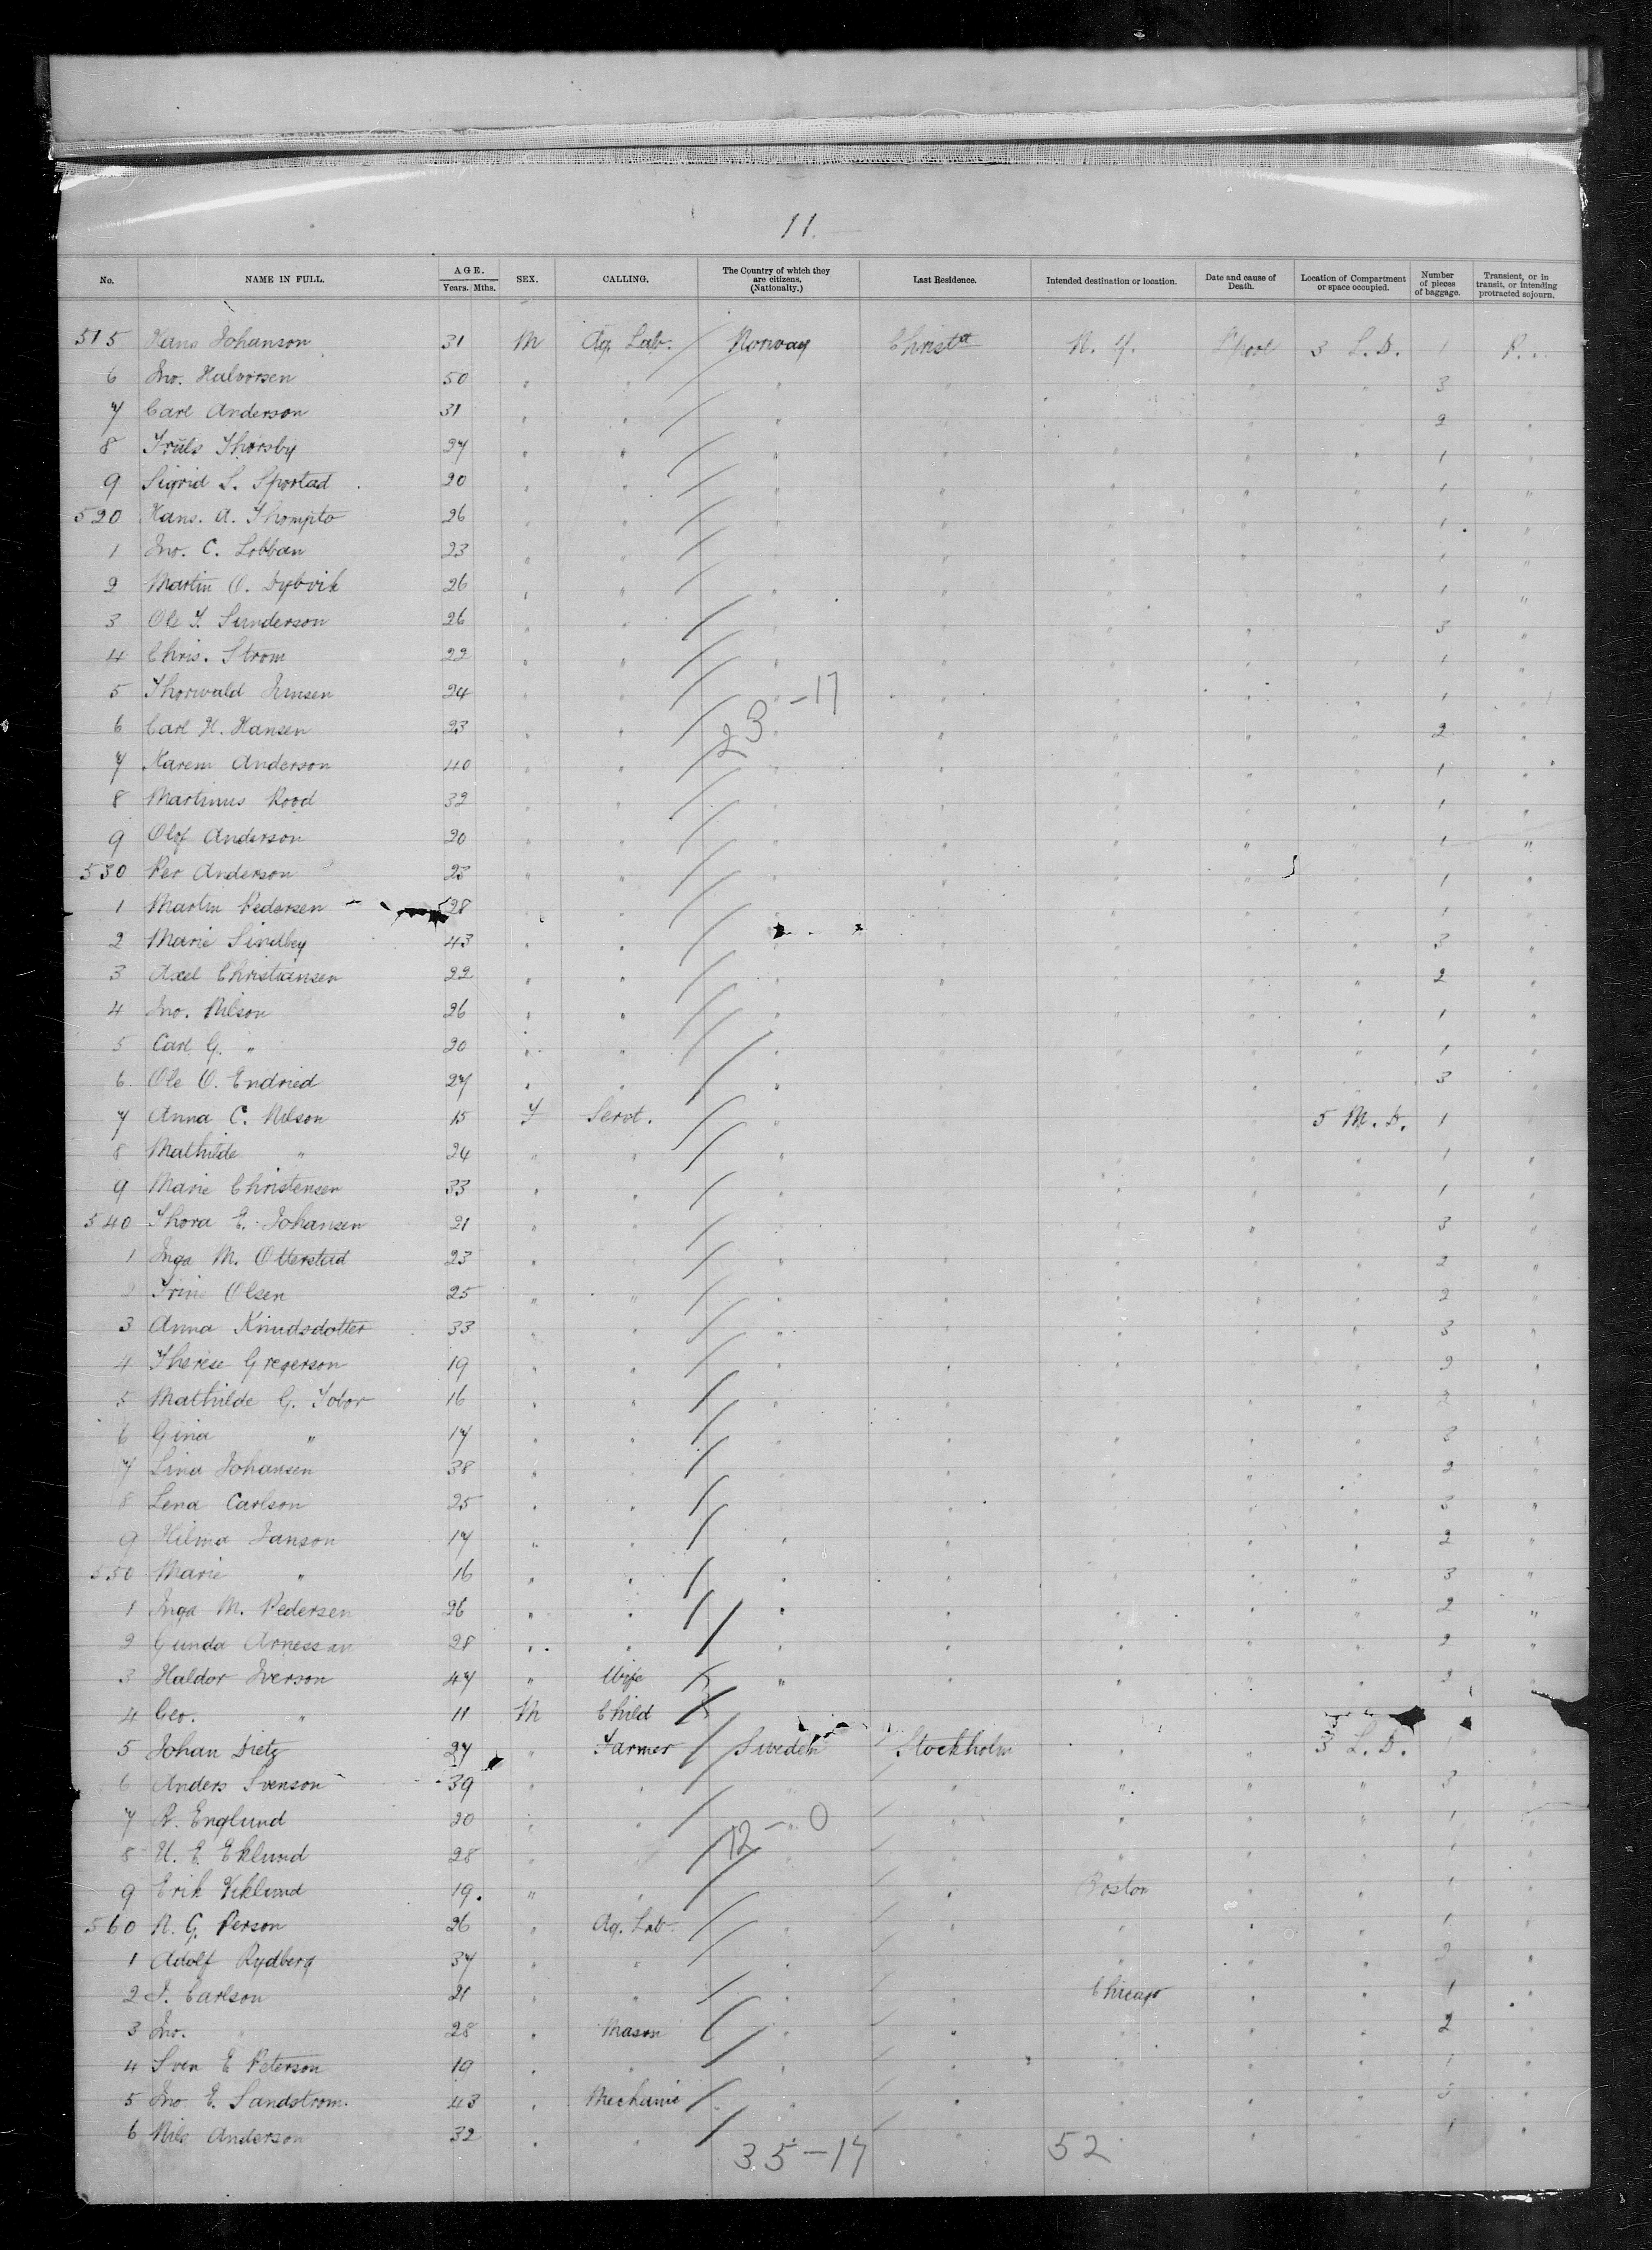 11.
No. NAME IN FULL. AGE. Years. Mths. SEX. CALLING. The Country of which they are citizens. (Nationalty.) Last Residence. Intended destination or location. Date and cause of Death. Location of Compartment or space occupied. Number of pieces of baggage. Transient, or in transit, or intending protracted sojourn.
515 Hans Johanson 31 M Ag. Lab. Norway Christa N. Y. Lpool 3 L. D. 1 P.
6 Jno. Halvorsen 50 " " " " " " 3 "
7 Carl Anderson 31 " " " " " " 2 "
8 Truls Thorsby 27 " " " " " " " 1 "
9 Sigrid L. Sportad 20 " " " " " " " 1 "
520 Hans. A. Thompto 26 " " " " " " " 1 "
1 Jno. C. Lobban 23 " " " " " " " 1 "
2 Martin O. Dybvik 26 " " " " " " " 1 "
3 Ole T. Sunderson 26 " " " " " " " 3 "
4 Chris. Strom 22 " " " " " " " 1 "
5 Thorwald Jensen 24 " " " " " " " 1 "
6 Carl H. Hansen 23 " " 23-17 " " " " 2 "
7 Karem Anderson 40 " " " " " " " 1 "
8 Martinus Rood 32 " " " " " " " 1 "
9 Olof Anderson 20 " " " " " " " 1 "
530 Per Anderson 23 " " " " " " " 1 "
1 Martin Pedersen 28 " " " " " " " 1 "
2 Marie Sindbey 43 " " " " " " " 3 "
3 Axel Christiansen 22 " " " " " " " 2 "
4 Jno. Nilson 26 " " " " " " " 1 "
5 Carl G. " 20 " " " " " " " 1 "
6 Ole O. Endried 27 " " " " " " " 3 "
7 Anna C. Nilson 15 F Servt. " " " " 5 M. D. 1 "
8 Mathilde " 24 " " " " " " " 1 "
9 Marie Christensen 33 " " " " " " " 1 "
540 Thora E. Johansen 21 " " " " " " " 3 "
1 Inga M. Otterstad 23 " " " " " " " 2 "
2 Trine Olsen 25 " " " " " " " 2 "
3 Anna Knudsdotter 33 " " " " " " " 3 "
4 Therese Gregerson 19 " " " " " " " 2 "
5 Mathilde G. Tobor 16 " " " " " " " "
6 Gina " 17 " " " " " " " 2 "
7 Lina Johansen 38 " " " " " " " 2 "
8 Lena Carlson 25 " " " " " " " 3 "
9 Hilma Janson 17 " " " " " " " 2 "
550 Marie " 16 " " " " " " " 3 "
1 Inga M. Pedersen 26 " " " " " " " 2 "
2 Gunda Arnessan 28 " " " " " " " 2 "
3 Haldor Iverson 47 " Wife " " " " " "
4 Geo. " 11 M Child
5 Johan Dietz 27 " Farmer Sweden Stockholm " " 3 L. D. 1 "
6 Anders Svenson 39 " " " " " " " 3 "
7 R. Englund 20 " " " " " " " 1 "
8 U. E. Eklund 28 " " 12-0 " " " " 1 "
9 Erik Viklund 19. " " " Boston " " 1 "
560 N. G. Person 26 " Ag. Lab. " " " " " 1 "
1 Adolf Rydberg 37 " " " " " " " 2 "
2 J. Carlson 21 " " " " Chicago " " 1 "
3 Jno. " 28 " Mason " " " " " 2 "
4 Sven E Peterson 19 " " " " " " " 1 "
5 Jno. E. Sandstrom. 43 " Mechanic " " " " " "
6 Nils Anderson 32 " " " " " " 1 "
35-17 52